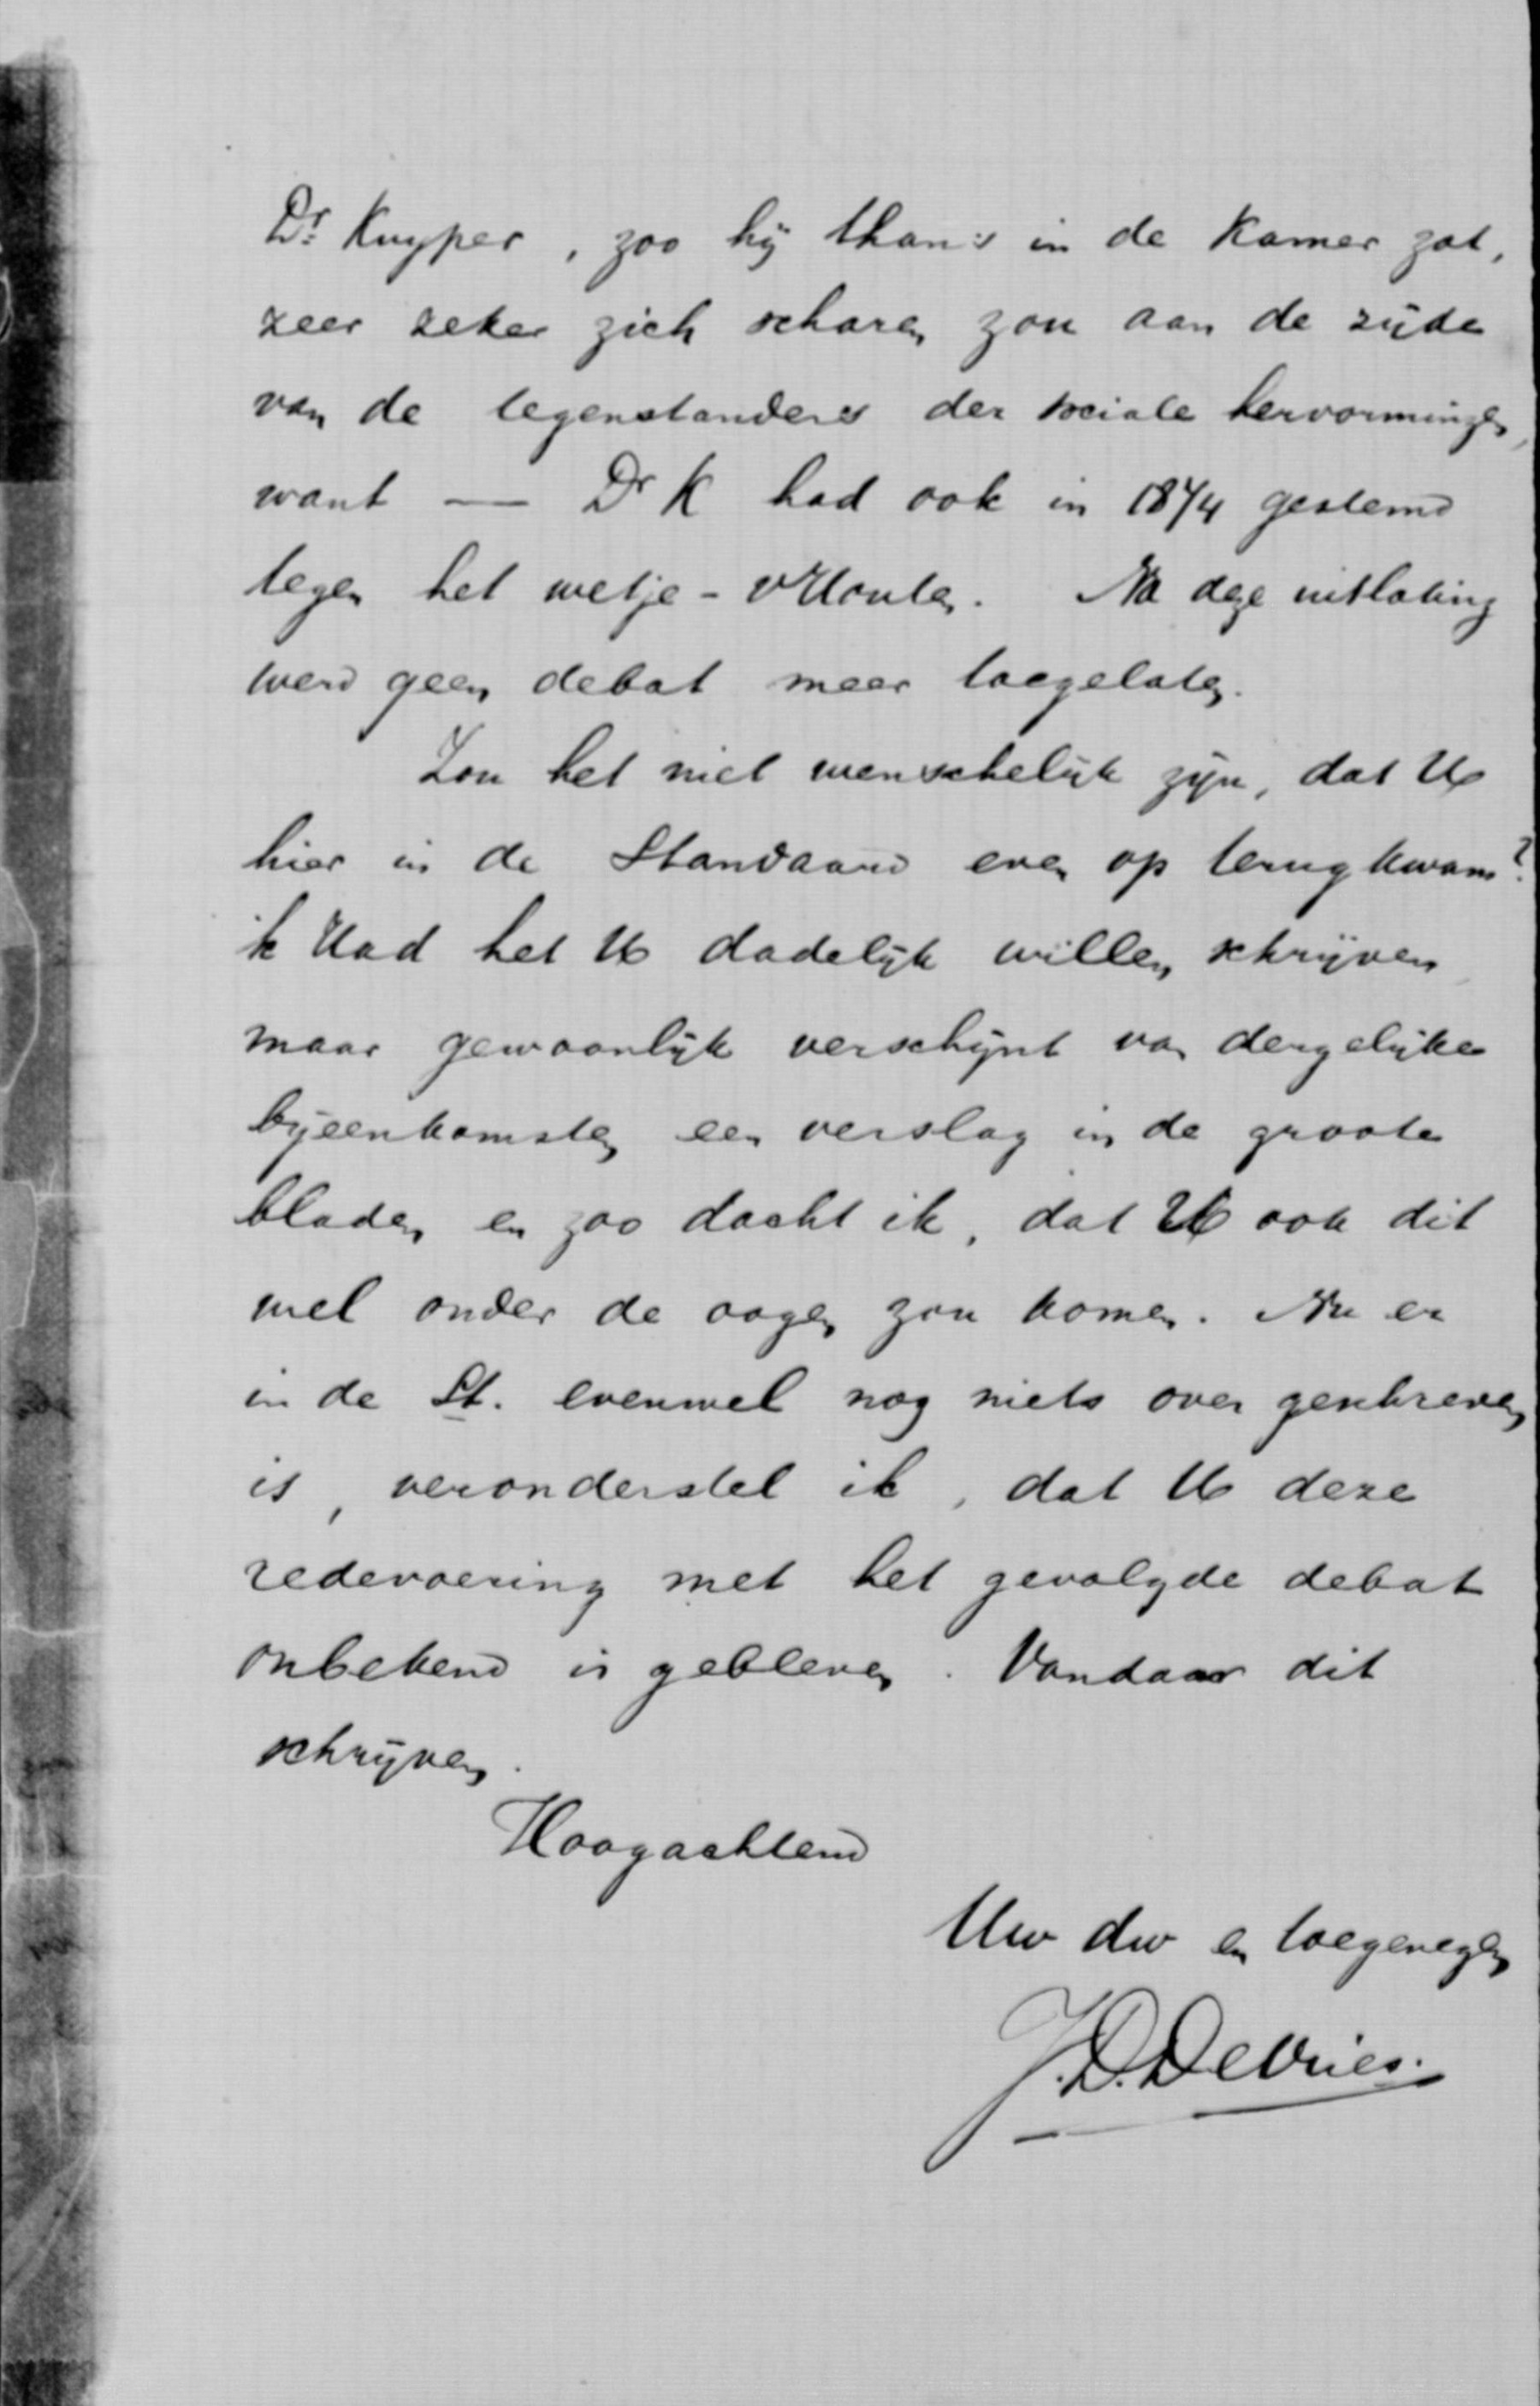 Dr. Kuyper, zoo hij thans in de Kamer zat,
zeer zeker zich scharen zou aan de zijde
van de tegenstanders der sociale hervormingen,
want — Dr K had ook in 1874 gestemd
tegen het wetje - v Houten. Na deze uitlating
werd geen debat meer toegelaten.
Zou het niet wenschelijk zijn, dat U
hier in de Standaard even op terugkwam?
ik Had het U dadelijk willen schrijven
maar gewoonlijk verschijnt van dergelijke
bijeenkomsten een verslag in de groote
bladen en zoo dacht ik, dat U ook dit
wel onder de oogen zou komen. Nu er
in de St. evenwel nog niets over geschreven
is, veronderstel ik, dat U deze
redevoering met het gevolgde debat
onbekend is gebleven. Vandaar dit
schrijven.
Hoogachtend
Uw dw en toegenegen
J.D. De Vries.